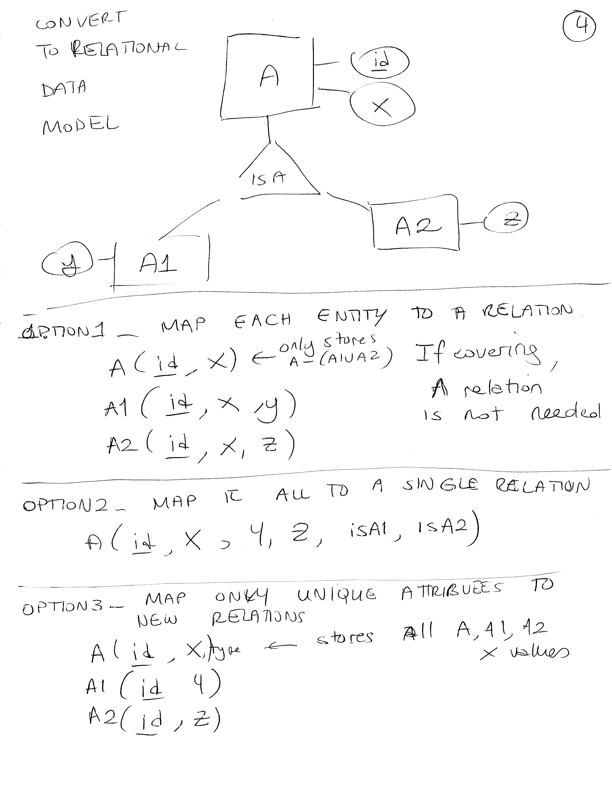 CONVERT
TO RELATIONAL
DATA
MODEL
4
A
id
X
ISA
A1
y
A2
z
OPTION1 - MAP EACH ENTITY TO A RELATION
A(id, X) ← only stores A-(A1UA2)
If covering,
A relation
is not needed
A1(id, X, y)
A2(id, X, Z)
OPTION2 - MAP IT ALL TO A SINGLE RELATION
A(id, X, Y, Z, isA1, ISA2)
OPTION3 - MAP ONLY UNIQUE ATTRIBUTES TO
NEW RELATIONS
A(id, X, type ← stores All A, A1, A2
X values
A1(id Y)
A2(id, Z)